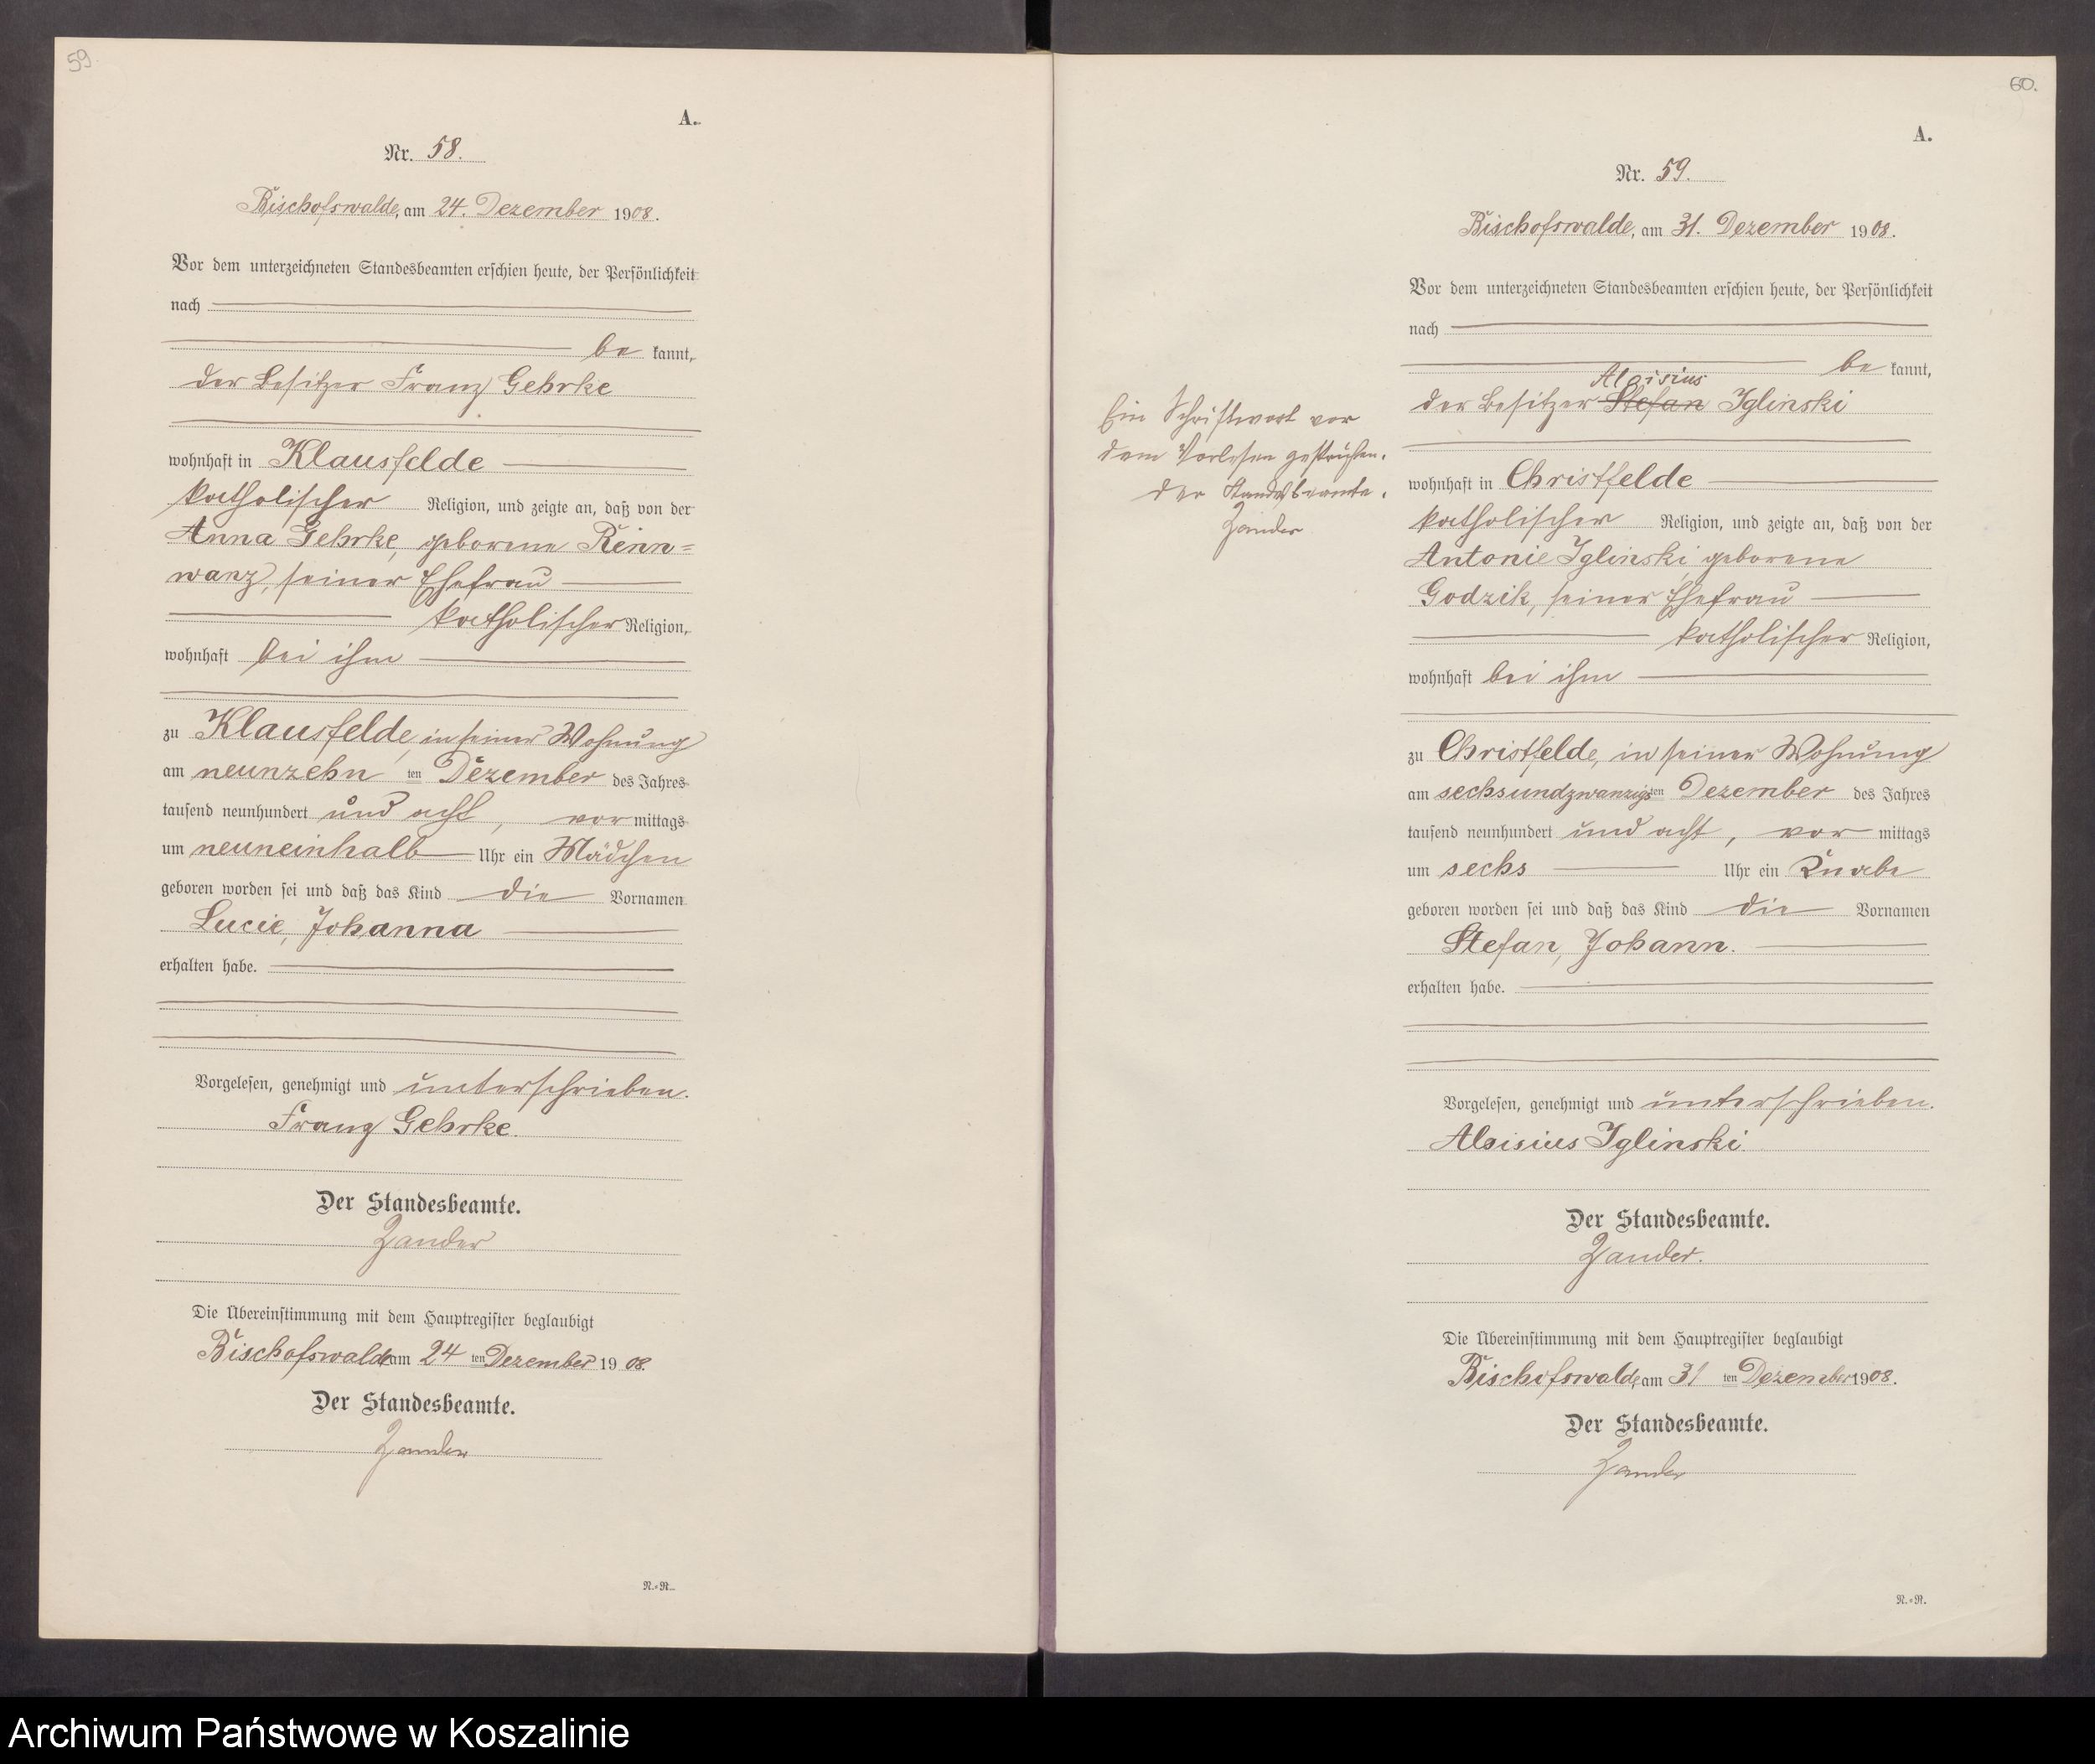 59.
A.
Nr. 58.
Bischofswalde, am 24. Dezember 1908.
Vor dem unterzeichneten Standesbeamten erschien heute, der Persönlichkeit
nach
be kannt,
der Besitzer Franz Gehrke
wohnhaft in Klausfelde
katholischer Religion, und zeigte an, daß von der
Anna Gehrke, geborene Renn=
wanz, seiner Ehefrau
katholischer Religion,
wohnhaft bei ihm
zu Klausfelde, in seiner Wohnung
am neunzehn ten Dezember des Jahres
tausend neunhundert und acht, vor mittags
um neuneinhalb Uhr ein Mädchen
geboren worden sei und daß das Kind die Vornamen
Lucie, Johanna
erhalten habe.
Vorgelesen, genehmigt und unterschrieben.
Franz Gehrke.
Der Standesbeamte.
Zander
Die Übereinstimmung mit dem Hauptregister beglaubigt
Bischofswalde am 24 ten Dezember 1908.
Der Standesbeamte.
Zander
N.=R.
60.
A.
Nr. 59.
Bischofswalde, am 31. Dezember 1908.
Vor dem unterzeichneten Standesbeamten erschien heute, der Persönlichkeit
nach
be kannt,
Aloisius
der Besitzer Stefan Iglinski
Ein Schriftwort vor
dem Vorlesen gestrichen.
Der Standesbeamte.
Zander
wohnhaft in Christfelde
katholischer Religion, und zeigte an, daß von der
Antonie Iglinski, geborene
Godzik, seiner Ehefrau
katholischer Religion,
wohnhaft bei ihm
zu Christfelde, in seiner Wohnung
am sechsundzwanzigsten Dezember des Jahres
tausend neunhundert und acht, vor mittags
um sechs Uhr ein Knabe
geboren worden sei und daß das Kind die Vornamen
Stefan, Johann.
erhalten habe.
Vorgelesen, genehmigt und unterschrieben.
Aloisius Iglinski.
Der Standesbeamte.
Zander.
Die Übereinstimmung mit dem Hauptregister beglaubigt
Bischofswalde, am 31 ten Dezember 1908.
Der Standesbeamte.
Zander
N.=R.
Archiwum Państwowe w Koszalinie